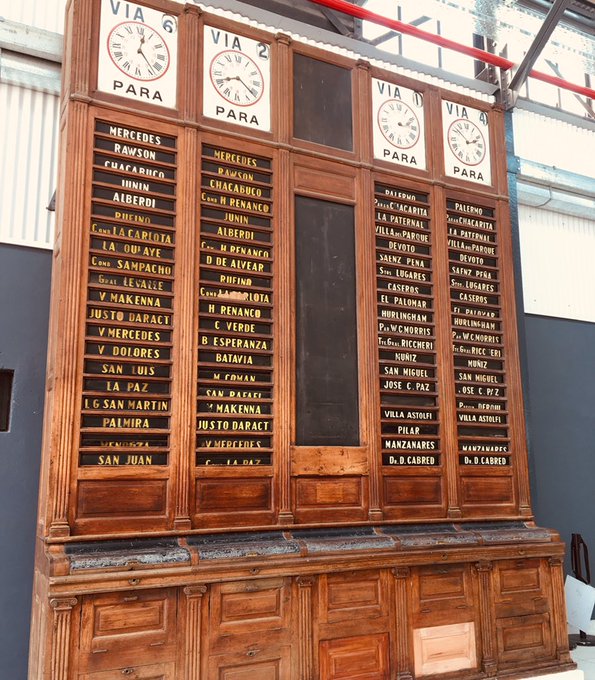 VIA 6
PARA
MERCEDES
RAWSON
CHACABUCO
JUNIN
ALBERDI
RUFINO
COND LA CARLOTA
LA QU'AYE
COND SAMPACHO
GRAL LEVALLE
V MAKENNA
JUSTO DARACT
V MERCEDES
V DOLORES
SAN LUIS
LA PAZ
LG SAN MARTIN
PALMIRA
MENDOZA
SAN JUAN
VIA 2
PARA
MERCEDES
RAWSON
CHACABUCO
COND H RENANCO
JUNIN
ALBERDI
COND H. RENANCO
D DE ALVEAR
RUFINO
COND LA CARLOTA
H. RENANCO
C VERDE
B ESPERANZA
BATAVIA
M COMAN
SAN RAFAEL
V MAKENNA
JUSTO DARACT
V MERCEDES
COND LA PAZ
VIA 1
PARA
PALERMO
PAR CHACARITA
LA PATERNAL
VILLA DEL PARQUE
DEVOTO
SAENZ PEÑA
STOS LUGARES
CASEROS
EL PALOMAR
HURLINGHAM
PAR W.C MORRIS
TTE GRAL RICCHERI
MUÑIZ
SAN MIGUEL
JOSE C. PAZ
VILLA ASTOLFI
PILAR
MANZANARES
DR D. CABRED
VIA 4
PARA
PALERMO
PAR CHACARITA
LA PATERNAL
VILLA DEL PARQUE
DEVOTO
SAENZ PEÑA
STOS LUGARES
CASEROS
EL PALOMAR
HURLINGHAM
PAR W.C MORRIS
TTE GRAL RICC ERI
MUÑIZ
SAN MIGUEL
JOSE C. PAZ
PTE DERQUI
VILLA ASTOLFI
MANZANARES
DR D. CABRED